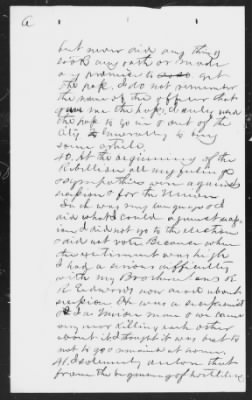 but never did any thing
took any oath or made
any promise to get
the pass. I do not remember
the name of the officer that
gave me the pass, I only used
the pass to go in & out of the
City & generally to buy
some article.
40. At the beginning of the
Rebellion all my feelings
& sympathies were against
secession & for the Union
Such was my language & I
did what I could against seces-
sion I did not go to the election
& did not vote Because when
the excitement was high
I had a serious difficulty
with my Brother Jas
R Edwards now dead about
secession He was a secessionist
& I a Union man & we came
very near killing each other
about it. I thought it was best
not to go & remained at home,
41. I solemnly declare that
from the beginning of hostilities